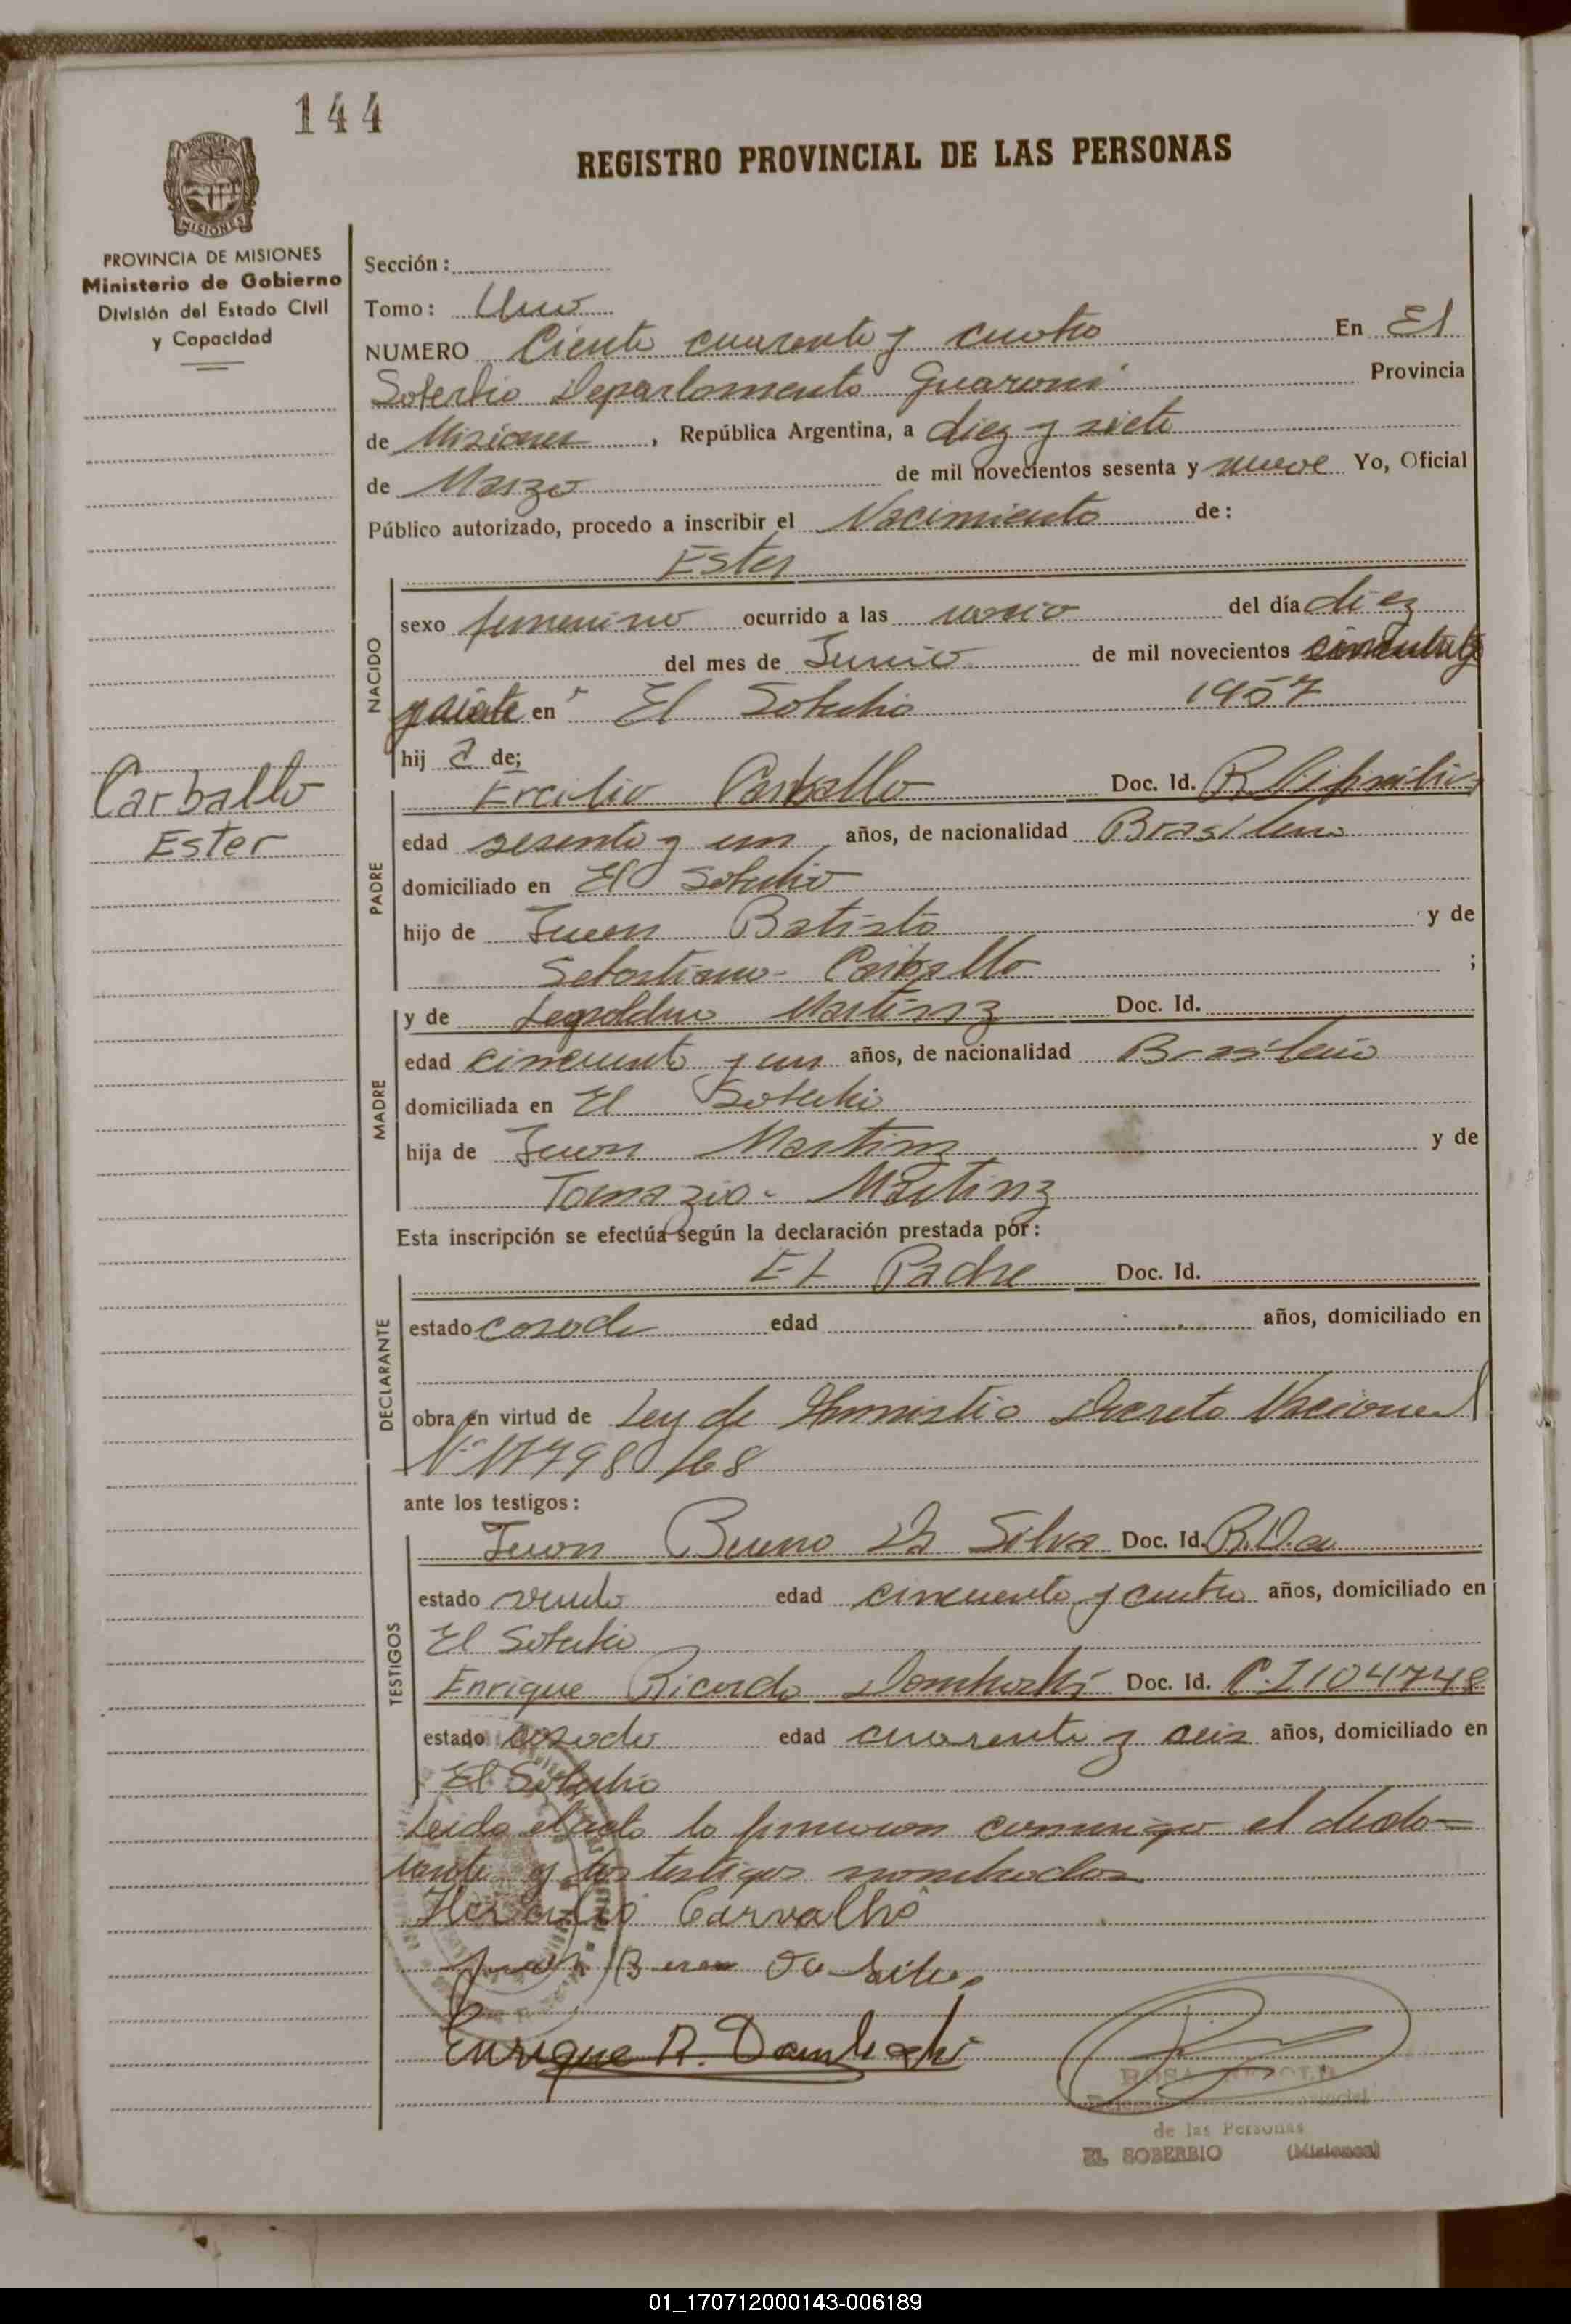 144
REGISTRO PROVINCIAL DE LAS PERSONAS
PROVINCIA DE MISIONES
MISIONES
PROVINCIA DE MISIONES
Ministerio de Gobierno
División del Estado Civil
y Capacidad
Carballo
Ester
Sección:
Tomo: Uno
NUMERO Ciento cuarenta y cuatro En El
Soberbio Departamento Guarani Provincia
de Misiones, República Argentina, a diez y siete
de Marzo de mil novecientos sesenta y nueve Yo, Oficial
Público autorizado, procedo a inscribir el Nacimiento de:
Ester
NACIDO
sexo femenino ocurrido a las del día diez
del mes de Junio de mil novecientos cincuenta
y siete en El Soberbio 1957
hij a de;
PADRE
Ercilio Carballo Doc. Id.
edad sesenta y un años, de nacionalidad Brasilero
domiciliado en El Soberbio
hijo de Juan Batista y de
Sebastiana - Carballo ;
MADRE
y de Leopoldina Martinz Doc. Id.
edad cincuenta y un años, de nacionalidad Brasilera
domiciliada en El Soberbio
hija de Juan Martinz y de
Tomazia - Martinz
Esta inscripción se efectúa según la declaración prestada por:
DECLARANTE
El Padre Doc. Id.
estado casado edad años, domiciliado en
obra en virtud de Ley de Amnistia Decreto Nacional
Nº 17798/68
ante los testigos:
TESTIGOS
Juan Bueno Da Silva Doc. Id.
estado viudo edad cincuenta y cuatro años, domiciliado en
El Soberbio
Enrique Ricardo Dombroski Doc. Id. C.I 104748
estado casado edad cuarenta y seis años, domiciliado en
El Soberbio
Leida el acta la firmaron conmigo el decla-
rante y los testigos nombrados
Carvalho
Juan Bueno Da Silva
Enrique R. Dombroski
ROSA
de las Personas
EL SOBERBIO (Misiones)
01_170712000143-006189